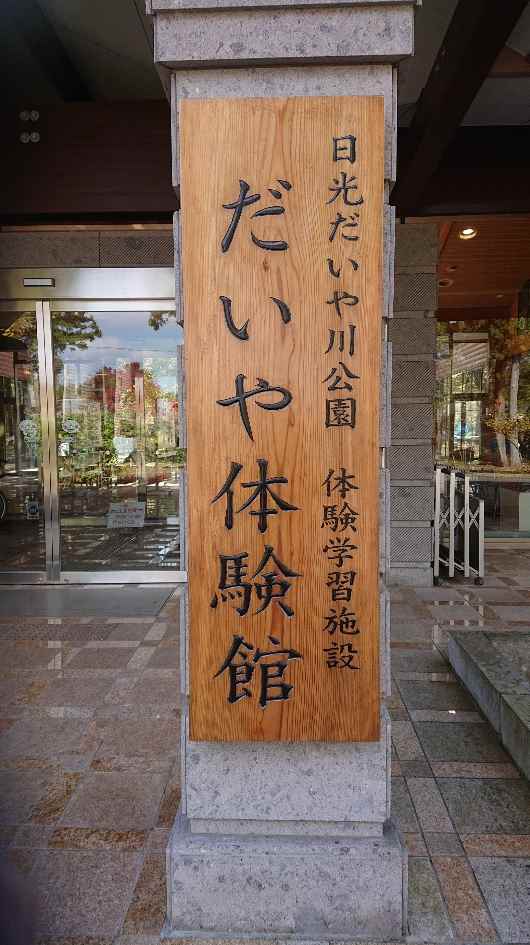 日光だいや川公園 体験学習施設
だいや体験館